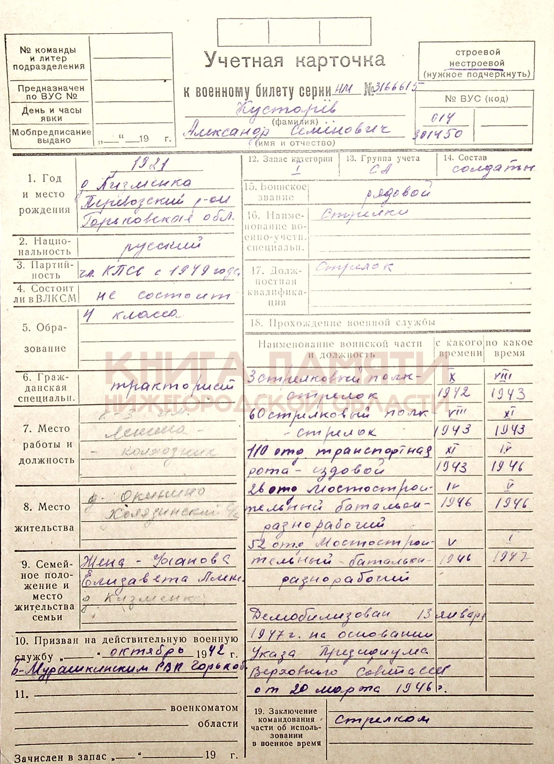 № команды
и литер
подразделения
Предназначен
по ВУС №
День и часы
явки
Мобпредписание
выдано „ “ 19 г.
Учетная карточка
к военному билету серии НМ № 3166615
Кустарёв
(фамилия)
Александр Семёнович
(имя и отчество)
строевой
нестроевой
(нужное подчеркнуть)
№ ВУС (код)
014
1. Год
и место
рождения
1921
Перевозский р-он
Горьковская обл.
2. Нацио-
нальность
русский
3. Партий-
ность
чл. КПСС с 1949 года
4. Состоит
ли в ВЛКСМ
не состоит
5. Обра-
зование
4 класса
6. Граж-
данская
специальн.
тракторист
7. Место
работы и
должность
Ленина -
8. Место
жительства
9. Семей-
ное поло-
жение и
место
жительства
семьи
Жена -
Елизавета
10. Призван на действительную военную
службу октябрь 1942 г.
Б-Мурашкинским РВК Горьков
11.
военкоматом
области
Зачислен в запас „ “ 19 г.
12. Запас категории
1
13. Группа учета
СА
14. Состав
солдаты
15. Воинское
звание
рядовой
16. Наиме-
нование во-
енно-учетн.
специальн.
Стрелки
17. Долж-
ностная
квалифика-
ция
Стрелок
18. Прохождение военной службы
Наименование воинской части
и должность
с какого
времени
по какое
время
3 стрелковый полк -
стрелок
X
1942
VIII
1943
60 стрелковый полк
- стрелок
VIII
1943
XI
1943
110 отд транспортная
рота - ездовой
XI
1943
IV
1946
26 отд Мостострои-
тельный батальон
разнорабочий
IV
1946
V
1946
52 отд Мостострои-
тельный батальон
разнорабочий
V
1946
I
1947
Демобилизован 13 января
1947 г. на основании
Указа Президиума
Верховного Совета СССР
от 20 марта 1946 г.
19. Заключение
командования
части об исполь-
зовании
в военное время
Стрелком
КНИГА ПАМЯТИ
НИЖЕГОРОДСКОЙ ОБЛАСТИ